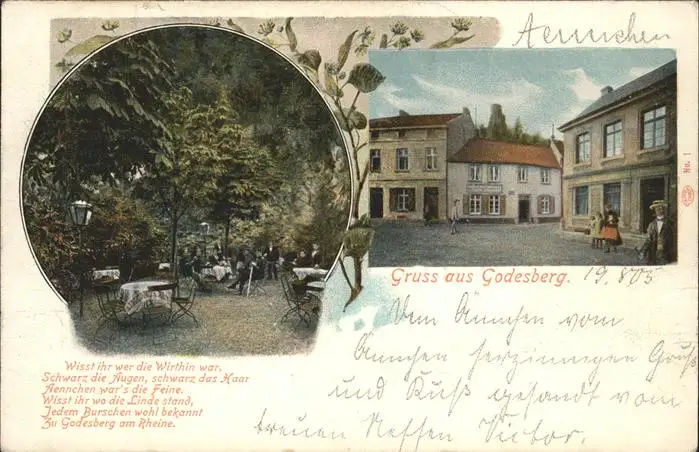 Aennchen
No. 1
Gruss aus Godesberg.
19. 8 05
Dem Ännchen vom
Ännchen herzinnigen Gruß
und Kuß gesandt vom
treuen Neffen Victor.
Wisst ihr wer die Wirthin war,
Schwarz die Augen, schwarz das Haar
Aennchen war's die Feine.
Wisst ihr wo die Linde stand,
Jedem Burschen wohl bekannt
Zu Godesberg am Rheine.